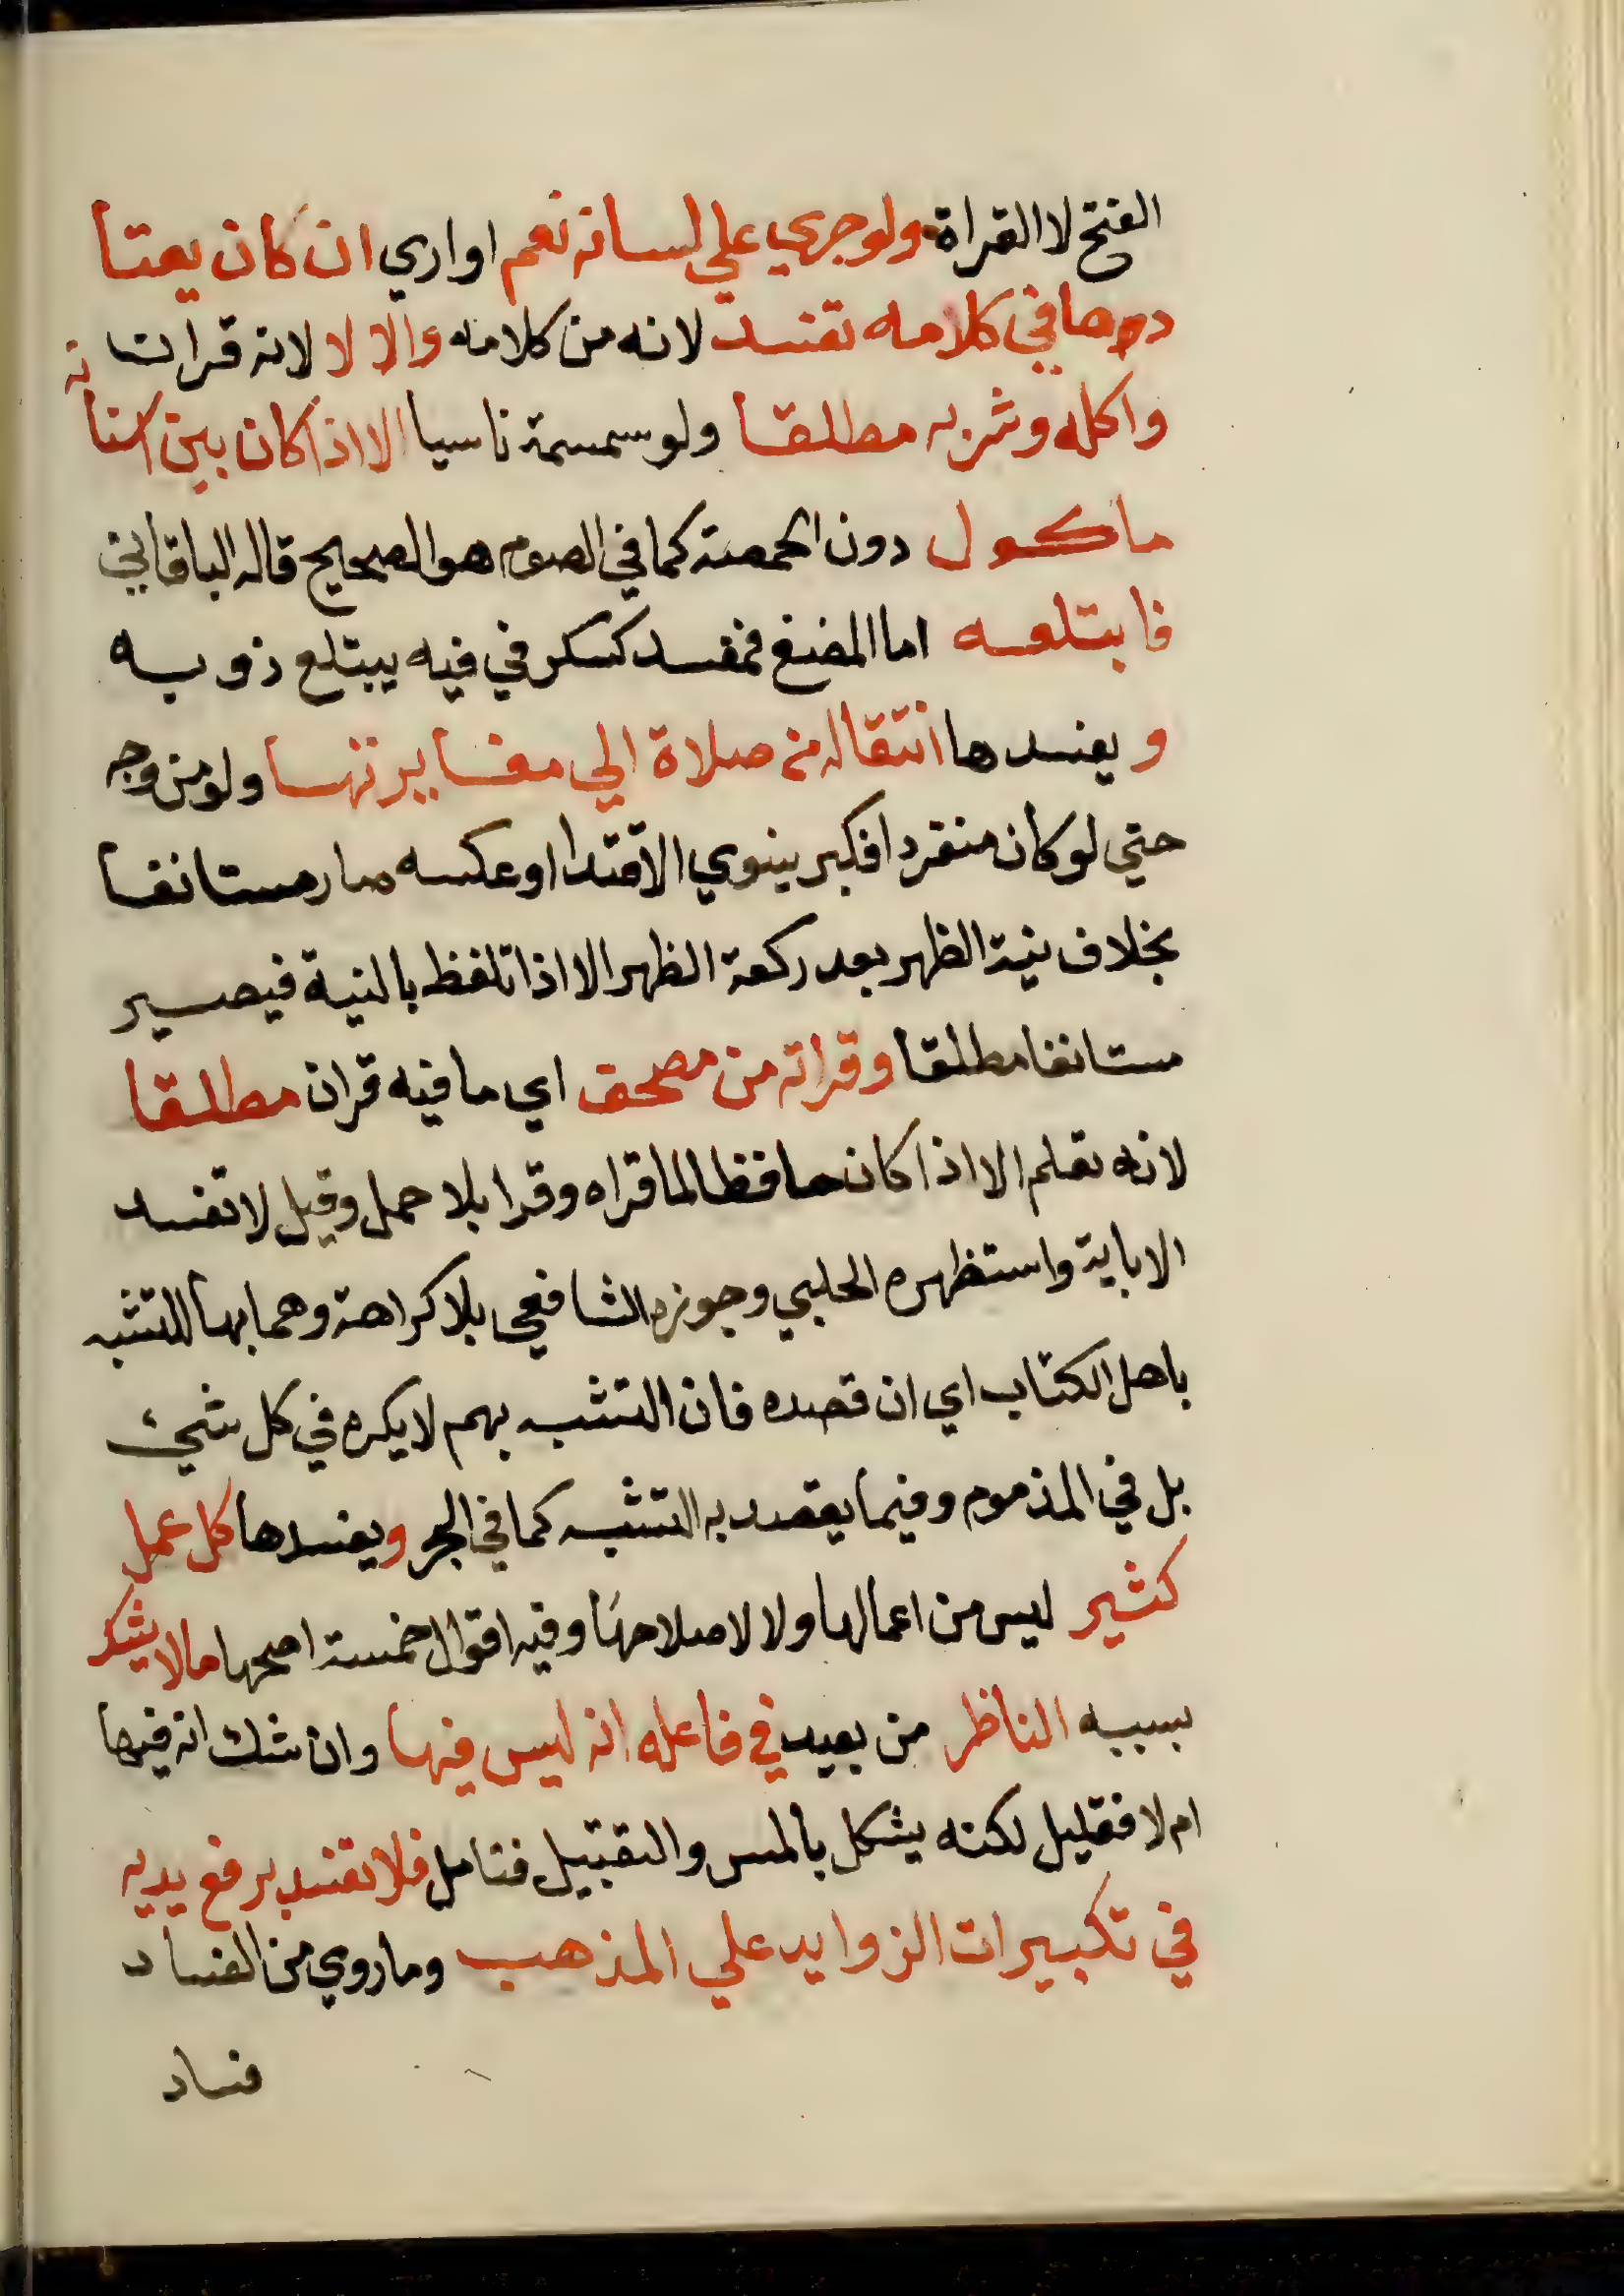 الفتح لا القراة ولو جري علي لسانه نعم اواري ان كان يعتا
دها في كلامه تفسد لانه من كلامه والا لا لانه قران
واكله وشربه مطلقا ولو سمسمة ناسيا الا اذا كان بين اسنانه
ماكول دون الحمصة كما في الصوم هو الصحيح قاله الباقاني
فابتلعه اما المضغ فمفسد كسكر في فيه يبتلع ذوبه
و يفسدها انتقاله من صلاة الي مغايرتها ولو من وجه
حتي لو كان منفردا فكبر ينوي الاقتدا او عكسه صار مستانفا
بخلاف نية الظهر بعد ركعة الظهر الا اذا تلفظ بالنية فيصير
مستانفا مطلقا وقراته من مصحف اي ما فيه قران مطلقا
لانه تعلم الا اذا كان حافظا لما قراه وقرا بلا حمل وقيل لا تفسد
الا باية واستظهره الحلبي وجوزه الشافعي بلا كراهة وهما بها للتشبه
باهل الكتاب اي ان قصده فان التشبه بهم لا يكره في كل شيء
بل في المذموم وفيما يقصد به التشبه كما في البحر ويفسدها كل عمل
كثير ليس من اعمالها ولا لاصلاحها وفيه اقوال خمسة اصحها ما لا يشك
بسببه الناظر من بعيد في فاعله انه ليس فيها وان شك انه فيها
ام لا فقليل لكنه يشكل بالمس والتقبيل فتامل فلا تفسد برفع يديه
في تكبيرات الزوايد علي المذهب وما روي من الفساد
فساد